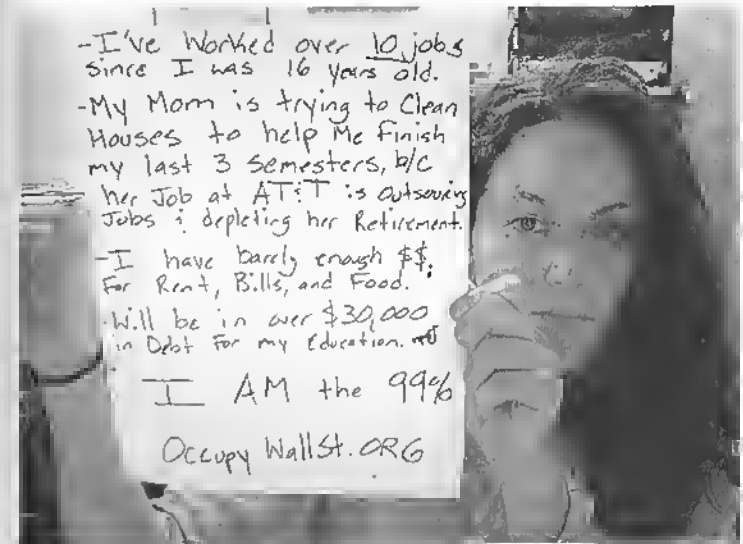 -I've Worked over 10 jobs
since I was 16 years old.
-My Mom is trying to Clean
Houses to help Me Finish
my last 3 semesters, b/c
her Job at AT&T is Outsourcing
Jobs & depleting her Retirement.
-I have barely enough $$.
For Rent, Bills, and Food.
-Will be in over $30,000
in Debt For my Education.
I AM the 99%
Occupy WallSt.ORG